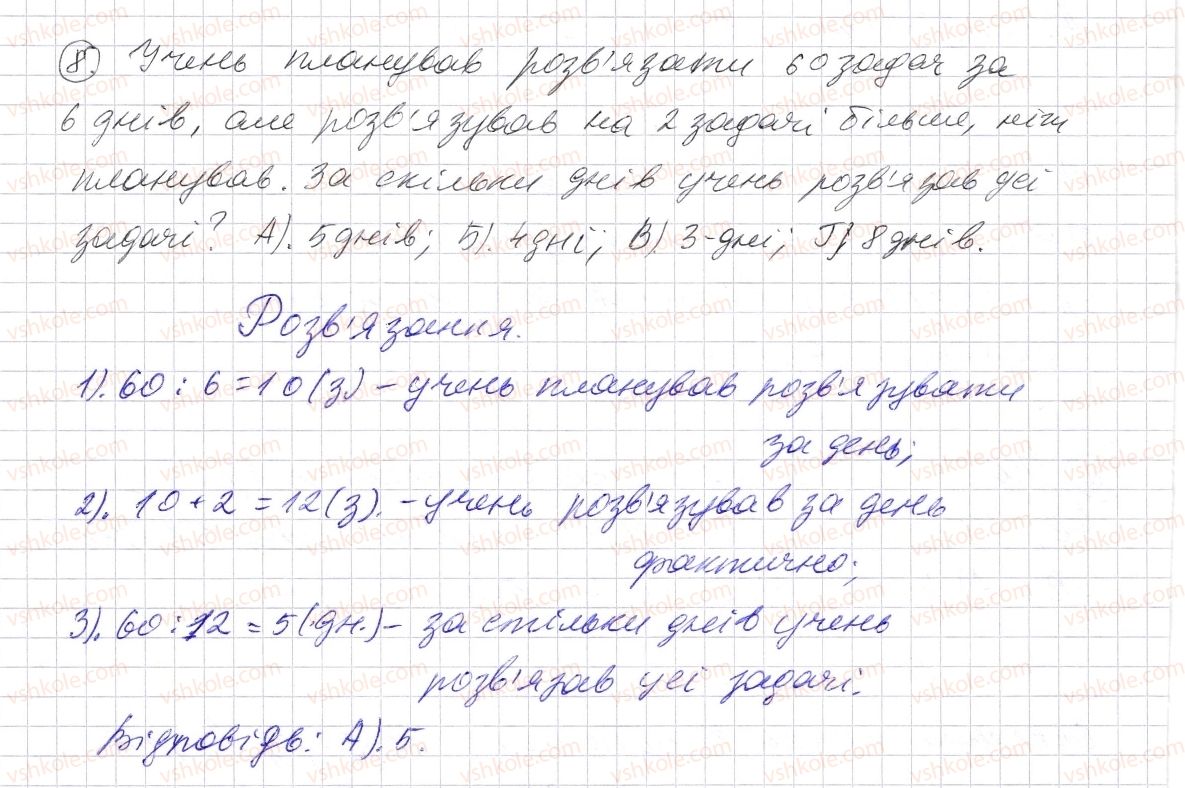 8. Учень планував розв'язати 60 задач за
6 днів, але розв'язував на 2 задачі більше, ніж
планував. За скільки днів учень розв'язав усі
задачі? А). 5 днів; Б). 4 дні; В). 3-дні; Г) 8 днів.
Розв'язання.
1). 60 : 6 = 10 (з) – учень планував розв'язувати
за день;
2). 10 + 2 = 12 (з). – учень розв'язував за день
фактично;
3). 60 : 12 = 5 (дн.) – за стільки днів учень
розв'язав усі задачі.
Відповідь: А). 5.